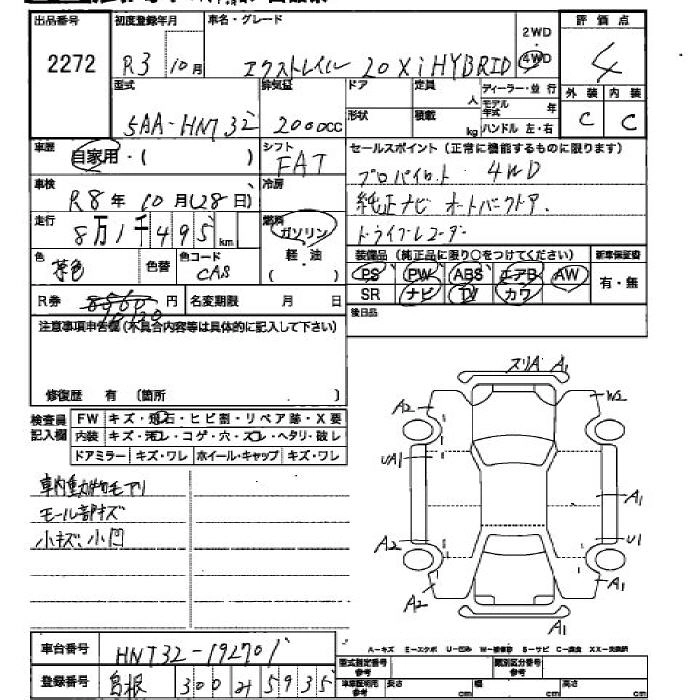 出品番号 初度登録年月 車名・グレード 2WD 評価点
2272 R3 10月 エクストレイル 20Xi HYBRID 4WD 4
型式 排気量 ドア 定員 人 ディーラー・並行 外装 内装
5AA-HNT32 2000cc 形状 積載 kg モデル年式 年 C C
ハンドル 左・右
車歴 自家用・( ) シフト FAT セールスポイント(正常に機能するものに限ります)
プロパイロット 4WD
車検 R8年10月(28日) 冷房 純正ナビ オートバックドア.
走行 8万1千495km 燃料 ガソリン ドライブレコーダー
軽・油
( )
色 茶色 色替 色コード CAS
装備品(純正品に限り○をつけてください) 新車保証書
PS PW ABS エアB AW 有・無
SR ナビ TV カワ
R券 円 名変期限 月 日
後日品
注意事項申告欄(不具合内容等は具体的に記入して下さい)
修復歴 有 (箇所 )
検査員記入欄 FW キズ・飛石・ヒビ割・リペア跡・X要
内装 キズ・汚レ・コゲ・穴・スレ・ヘタリ・破レ
ドアミラー キズ・ワレ ホイール・キャップ キズ・ワレ
車内動物毛アリ
モール部キズ
小キズ、小凹
スリA A1
A2 W2
UA1 A1
A2 U1
A2 A1
A1
A-キズ E-エクボ U-凹み
車台番号 HNT32-192701
登録番号 島根 300 5935
型式指定番号 参考 類別区分番号 参考
車庫証明用 参考 長さ cm 幅 cm 高さ cm